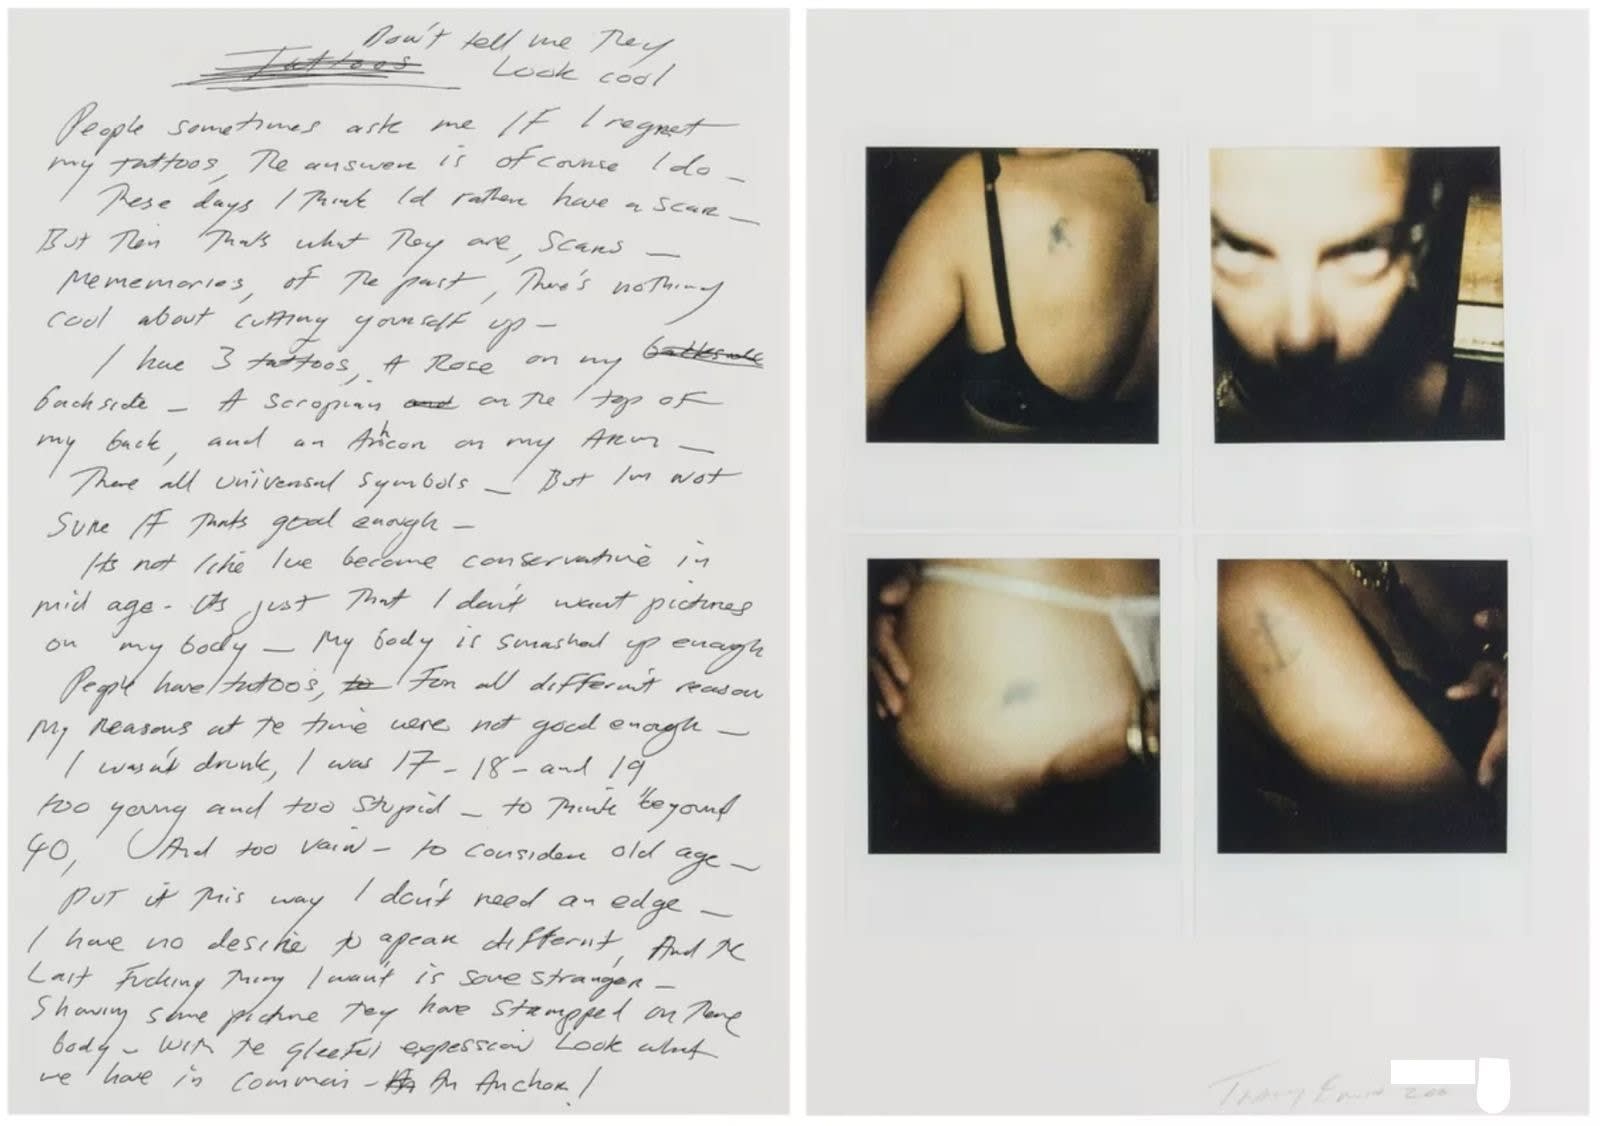 Don't tell me They
Tattoos Look cool
People sometimes ask me IF I regret
my tattoos, The answer is ofcourse I do –
These days I Think I'd rather have a scar –
But Then Thats what They are, Scars –
Mememories, of The past, There's nothing
cool about cutting yourself up –
I have 3 tattoos, A Rose on my backside
backside – A Scropian and on The top of
my back, and an Anhcor on my Arm –
There all universal symbols – But Im not
Sure IF Thats good enough –
Its not like Ive become conservative in
mid age – Its just That I don't want pictures
on my body – My body is smashed up enough
People have tattoo's, to For all different reason
My Reasons at te time were not good enough –
I wasn't drunk, I was 17 – 18 – and 19
too young and too Stupid – to Think beyound
40, And too vain – to consider old age –
PUT it This way I don't need an edge –
I have no desire to apear differnt, And Te
Last Fucking Thing I want is some stranger –
Showing some picture Tey have Stampped on There
body – With Te gleeful expession Look what
we have in common – An An Anchor!
Tracey Emin 200